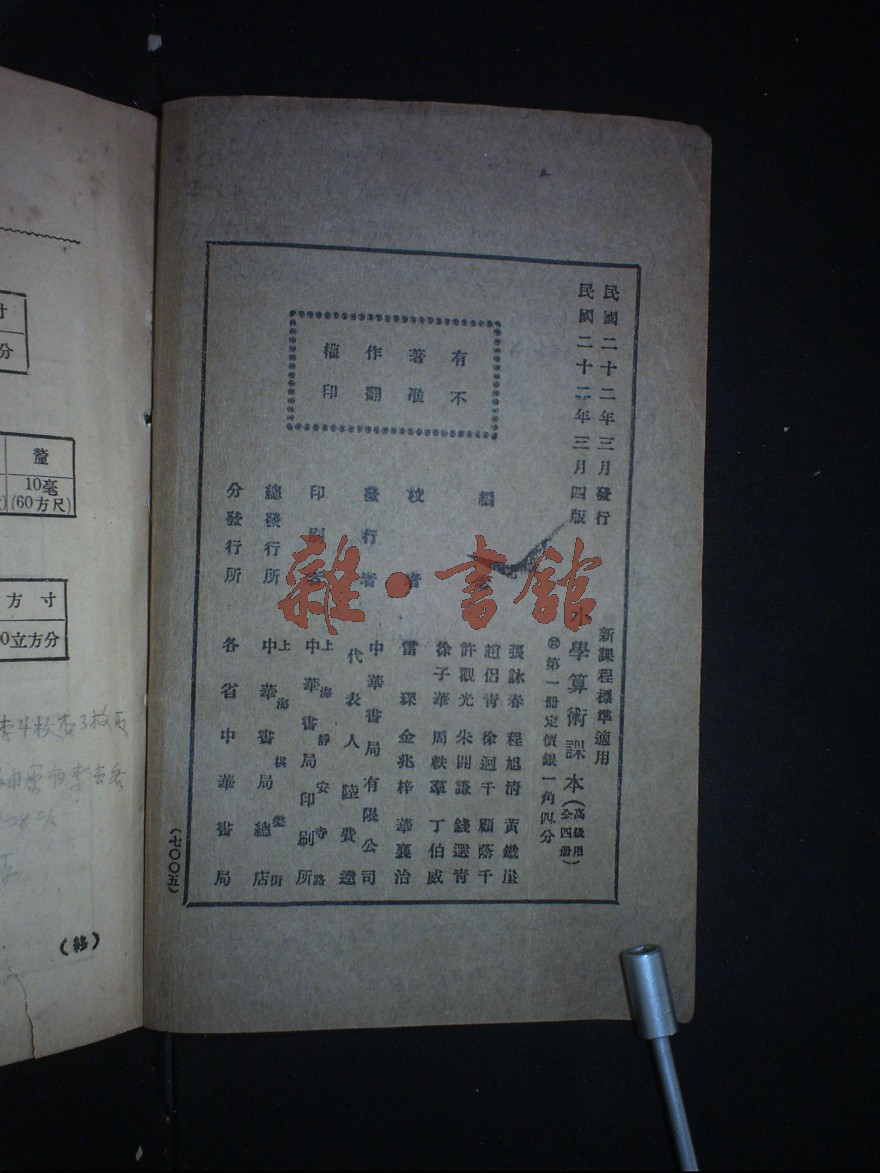 民國二十二年三月發行
民國二十二年三月四版
新課程標準適用
小學算術課本(高級用全四册)
第一册定價銀一角四分
有著作權
不准翻印
編者
張詠春 程旭清 黃鐵崖
趙侣青 徐迥千 顧蔭千
許觀光 朱開謙 錢選青
徐子華 周軼羣 丁伯威
校者
雷琛 金兆梓 華襄治
發行者
中華書局有限公司
代表人 陸費逵
印刷者
上海靜安寺路
中華書局印刷所
總發行所
上海棋盤街
中華書局總店
分發行所
各省中華書局
(七〇〇五)
雜·書館
寸
分
釐
10毫
(60方尺)
方寸
0立方分
(終)